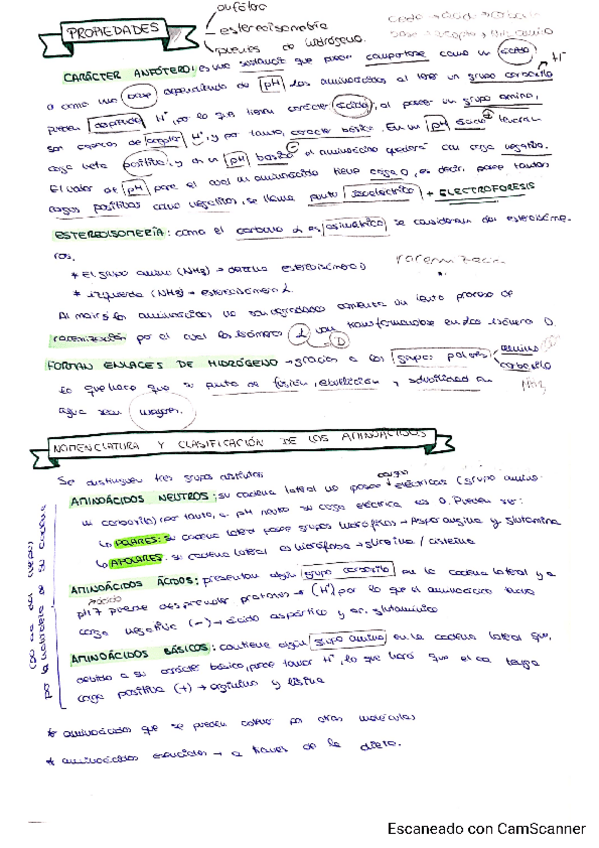 PROPIEDADES
anfótero
estereoisomería
puentes de hidrógeno
CARÁCTER ANFÓTERO: es una sustancia que puede comportarse como un ácido
o como una base dependiendo de pH. Los aminoácidos al tener un grupo carboxilo
pueden H⁺, por lo que tienen carácter ácido, al poseer un grupo amino,
son capaces de H⁺, y por tanto, carácter básico. En un pH
carga neta positiva, y en un pH básico el aminoácido quedará con carga negativa.
El valor de pH para el cual un aminoácido tiene carga 0, es decir, posee tantas
cargas positivas como negativas, se llama punto isoeléctrico + ELECTROFORESIS
ESTEREOISOMERÍA: como el carbono α es asimétrico se consideran dos estereoisóme
ros.
* El grupo amino (NH₂) → derecha estereoisómero D
* izquierda (NH₂) → estereoisómero L.
Al morir los aminoácidos un lento proceso de
racemización por el cual los isómeros L van transformándose en isómero D.
FORMAN ENLACES DE HIDRÓGENO → gracias a los grupos polares amino
carboxilo
lo que hace que su punto de fusión, ebullición y solubilidad en
agua sean mayores.
NOMENCLATURA Y CLASIFICACIÓN DE LOS AMINOÁCIDOS
Se distinguen tres grupos
AMINOÁCIDOS NEUTROS: su cadena lateral no posee carga eléctricas (grupo amino
ni carboxilo) por tanto, a pH neutro su carga eléctrica es 0. Pueden ser:
↳ POLARES: su cadena lateral posee grupos hidrófilos → Asparagina y glutamina
↳ APOLARES: su cadena lateral es hidrófoba → glicina / cisteína
AMINOÁCIDOS ÁCIDOS: presentan algún grupo carboxilo en la cadena lateral y a
pH 7 puede desprender protones → (H⁺) por lo que el aminoácido
carga negativa (-) → ácido aspártico y ac. glutámico
AMINOÁCIDOS BÁSICOS: contiene algún grupo amino en la cadena lateral que,
debido a su carácter básico, puede tomar H⁺, lo que hará que el aa tenga
carga positiva (+) → arginina y lisina
* aminoácidos que se pueden obtener en otras moléculas
* aminoácidos esenciales → a través de la dieta.
Escaneado con CamScanner